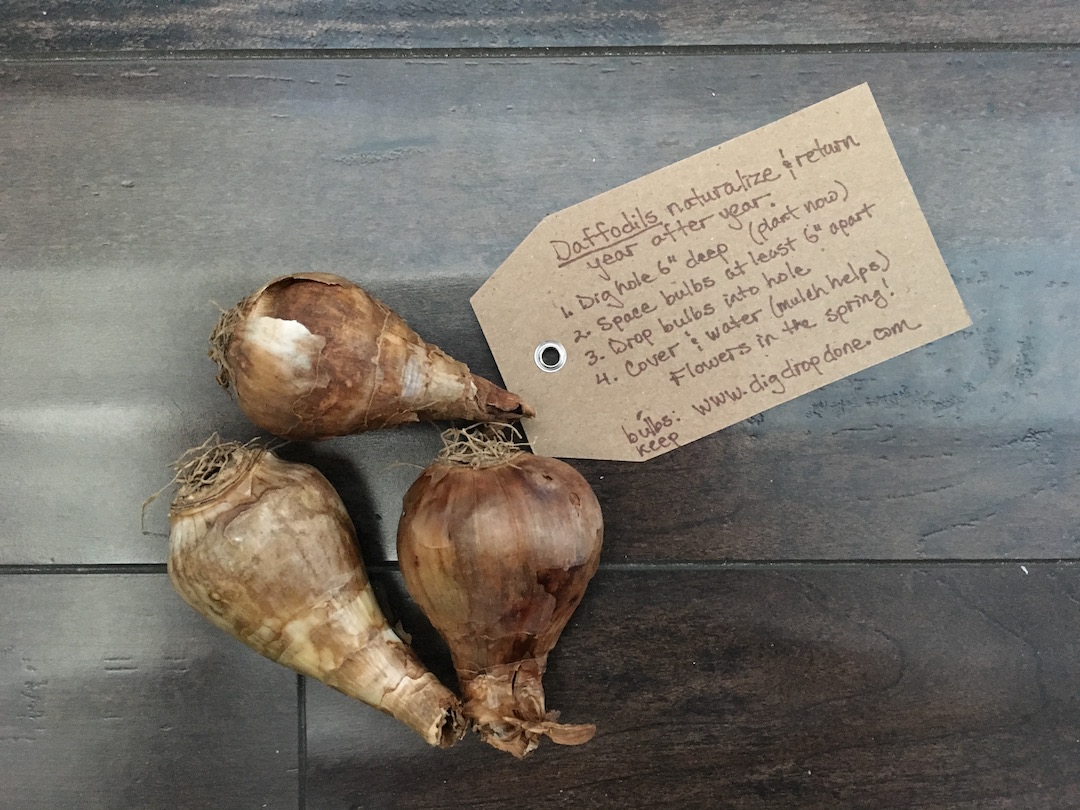 Daffodils naturalize & return
year after year.
1. Dig hole 6" deep (plant now)
2. Space bulbs at least 6" apart
3. Drop bulbs into hole
4. Cover & water (mulch helps)
Flowers in the spring!
bulbs: www.digdropdone.com
keep